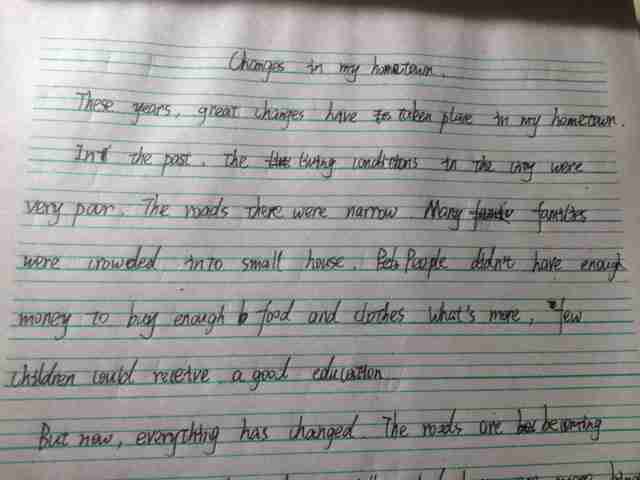 Changes in my hometown.
These years, great changes have taken place in my hometown.
In the past, the living conditions in the city were
very poor. The roads there were narrow Many families
were crowded into small house. People didn't have enough
money to buy enough food and clothes what's more, few
children could receive a good education
But now, everything has changed. The roads are becoming